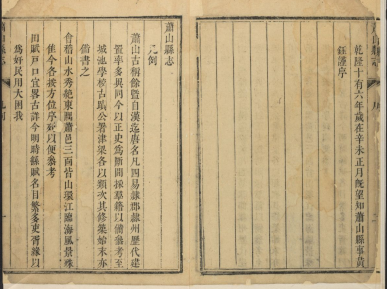 乾隆十有六年歲在辛未正月既望知蕭山縣事黃
鈺謹序
蕭山縣志
凡例
蕭山古稱餘暨自漢迄唐名凡四易隸郡隸州歷代建
置率多異同今以正史為斷閒採羣籍以備參考至
城池學校古蹟公署津梁各以類次其修築始末亦
備書之
會稽山水秀絶東南蕭邑三面皆山環江臨海風景殊
佳今各按方位序列以便參考
田賦戶口宜畧古詳今明時縣賦名目繁多吏胥緣以
為奸民用大困我